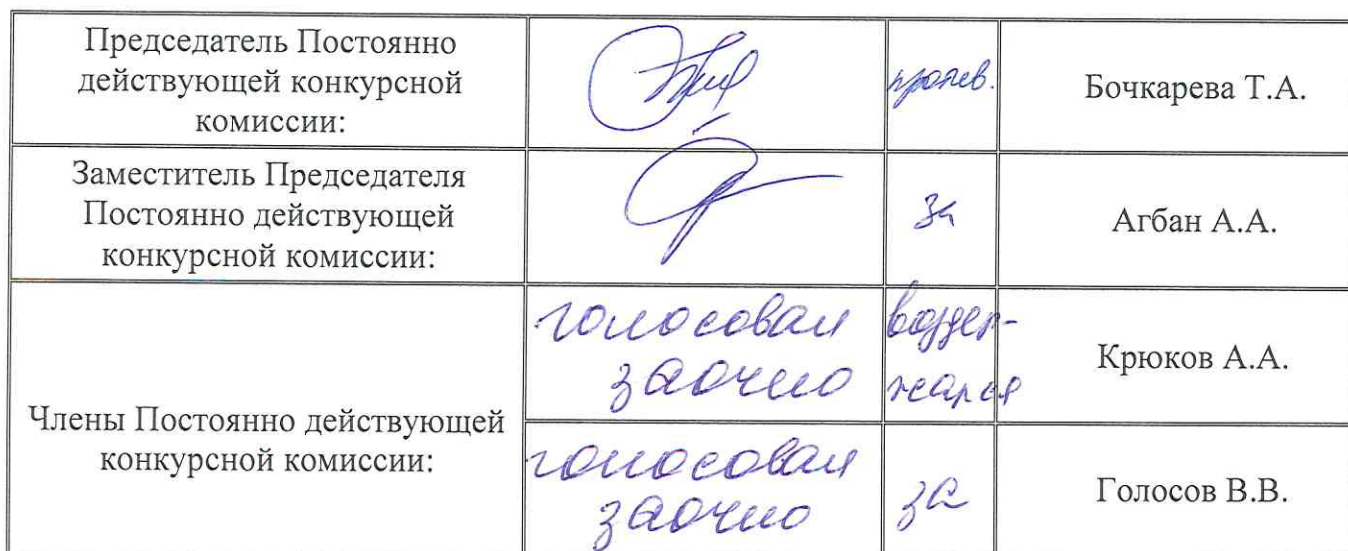 Председатель Постоянно
действующей конкурсной
комиссии:
против.
Бочкарева Т.А.
Заместитель Председателя
Постоянно действующей
конкурсной комиссии:
за
Агбан А.А.
Члены Постоянно действующей
конкурсной комиссии:
голосовал
заочно
воздер-
жался
Крюков А.А.
голосовал
заочно
за
Голосов В.В.